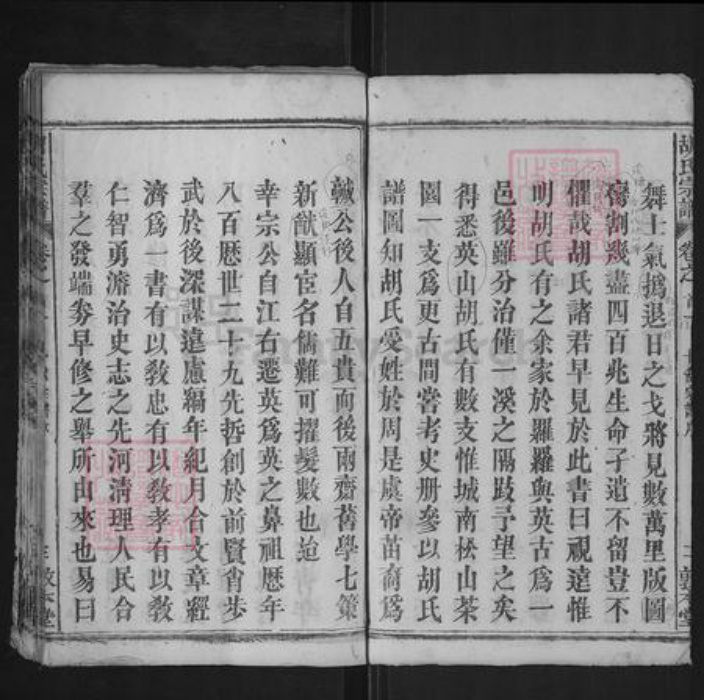 胡氏宗譜
卷之首
敦本堂
舞士氣撝退日之戈將見數萬里版圖
臠割幾盡四百兆生命孑遺不留豈不
懼哉胡氏諸君早見於此書曰視遠惟
明胡氏有之余家於羅羅與英古為一
邑後雖分治僅一溪之隔跂予望之矣
得悉英山胡氏有數支惟城南松山茶
園一支為更古間嘗考史册參以胡氏
譜圖知胡氏受姓於周是虞帝苗裔為
諴公後人自五貴而後兩齋舊學七策
新猷顯宦名儒難可擢髮數也迨
幸宗公自江右遷英為英之鼻祖歷年
八百歷世二十九先哲創於前賢肯步
武於後深謀遠慮編年紀月合文章經
濟為一書有以教忠有以教孝有以教
仁智勇濬治史志之先河清理人民合
羣之發端劵早修之舉所由來也易曰
敦本堂